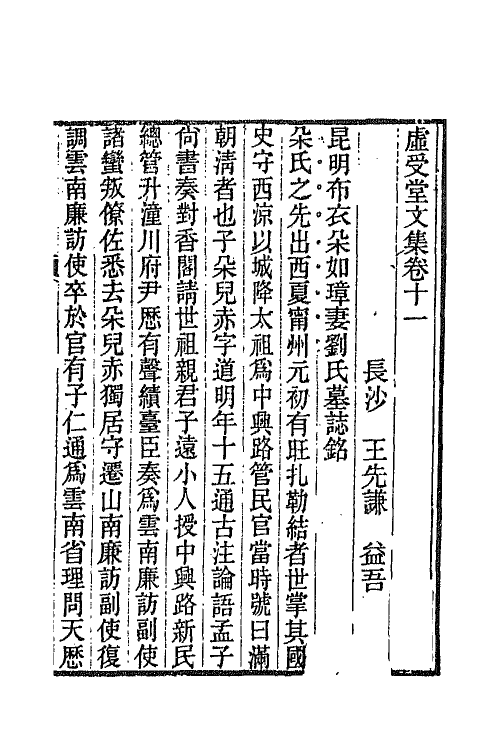 虛受堂文集卷十一
長沙　王先謙　益吾
昆明布衣朵如璋妻劉氏墓誌銘
朵氏之先出西夏甯州元初有旺扎勒結者世掌其國
史守西涼以城降太祖爲中興路管民官當時號曰滿
朝淸者也子朵兒赤字道明年十五通古注論語孟子
尙書奏對香閣請世祖親君子遠小人授中興路新民
總管升潼川府尹歷有聲績臺臣奏爲雲南廉訪副使
諸蠻叛僚佐悉去朵兒赤獨居守遷山南廉訪副使復
調雲南廉訪使卒於官有子仁通爲雲南省理問天歷